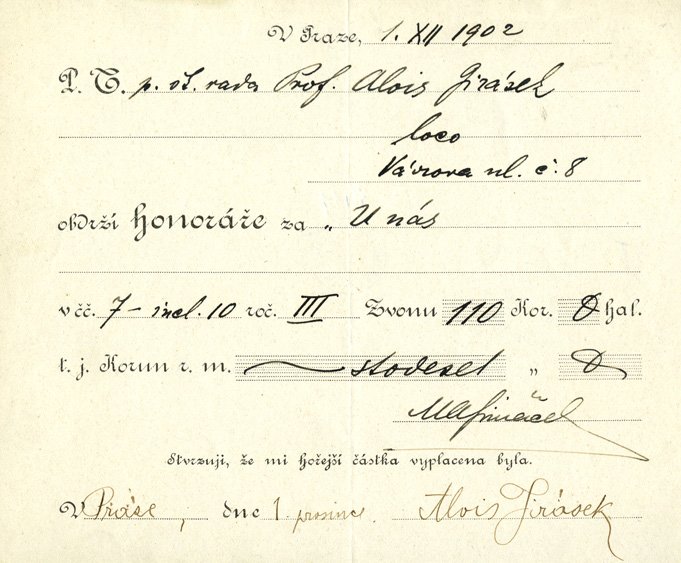 V Praze, 1. XII 1902
P. T. p. šk. rada Prof. Alois Jirásek
loco
Vávrova ul. č. 8
obdrží honoráře za „U nás
v čč. 7 – incl. 10 roč. III Zvonu 110 Kor. hal.
t. j. Korun r. m. stodeset „
Stvrzuji, že mi hořejší částka vyplacena byla.
V Práze, dne 1. prosince. Alois Jirásek